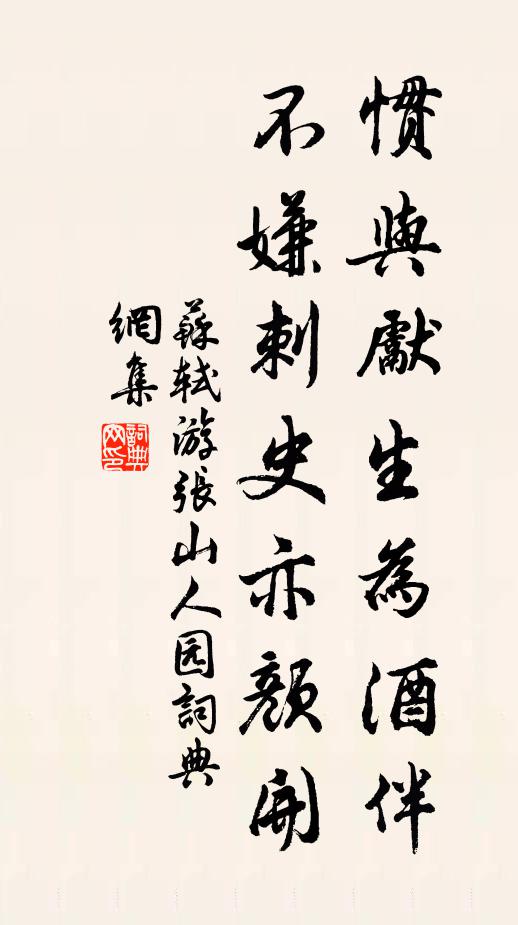 慣與獻生為酒伴
不嫌刺史亦顏開
蘇軾游張山人园詞典
網集
詞典
网印